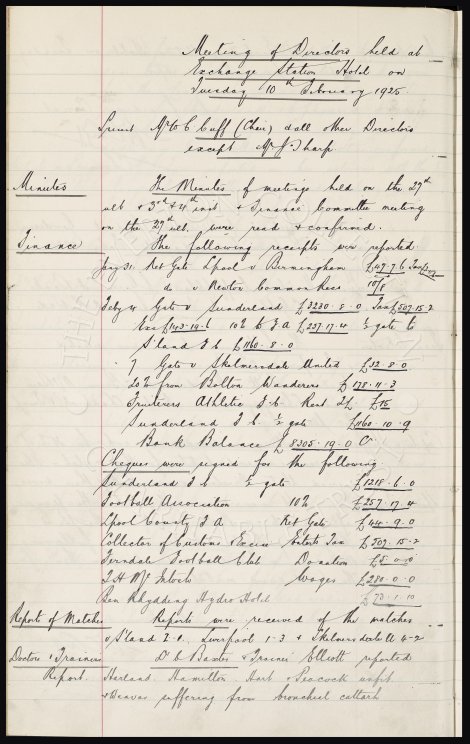 Meeting of Directors held at
Exchange Station Hotel on
Tuesday 10th February 1925.
Present Mr W C Cuff (Chair) & all other Directors
except Mr J Sharp
Minutes The Minutes of meetings held on the 27th
ult & 3rd & 4th inst & Finance Committee meeting
on the 27th ult. were read & confirmed.
Finance The following receipts were reported
Jany 31 Net Gate L'pool v Birmingham £49.7.6
do v Newton Common Recs 10/8
Feby 4 Gate v Sunderland £3230.8.0 Tax £507.15.2
£143.19.6 10% to F A £257.17.4 ½ gate to
S'land F C £1160.8.0
" 7 Gate v Skelmersdale United £32.8.0
20% from Bolton Wanderers £178.11.3
Fruiterers Athletic F C Rent £15
Sunderland F C ½ gate £1160.10.9
Bank Balance £8305.19.0 Cr
Cheques were signed for the following
Sunderland F C ½ gate £1218.6.0
Football Association 10% £257.17.4
L'pool County F A Net Gate £44.9.0
Collector of Customs & Excise Enterts Tax £507.15.2
Ferndale Football Club Donation £5.0.0
T H McIntosh Wages £280.0.0
Ben Rhydding Hydro Hotel £73.1.10
Reports of Matches Reports were received of the matches
v S'land 2.0. Liverpool 1-3 & Skelmersdale U 4-2
Doctors & Trainers Dr C Baxter & Trainer Elliott reported
Report. Harland, Hamilton, Hart & Peacock unfit
& Reavas suffering from bronchial catarrh